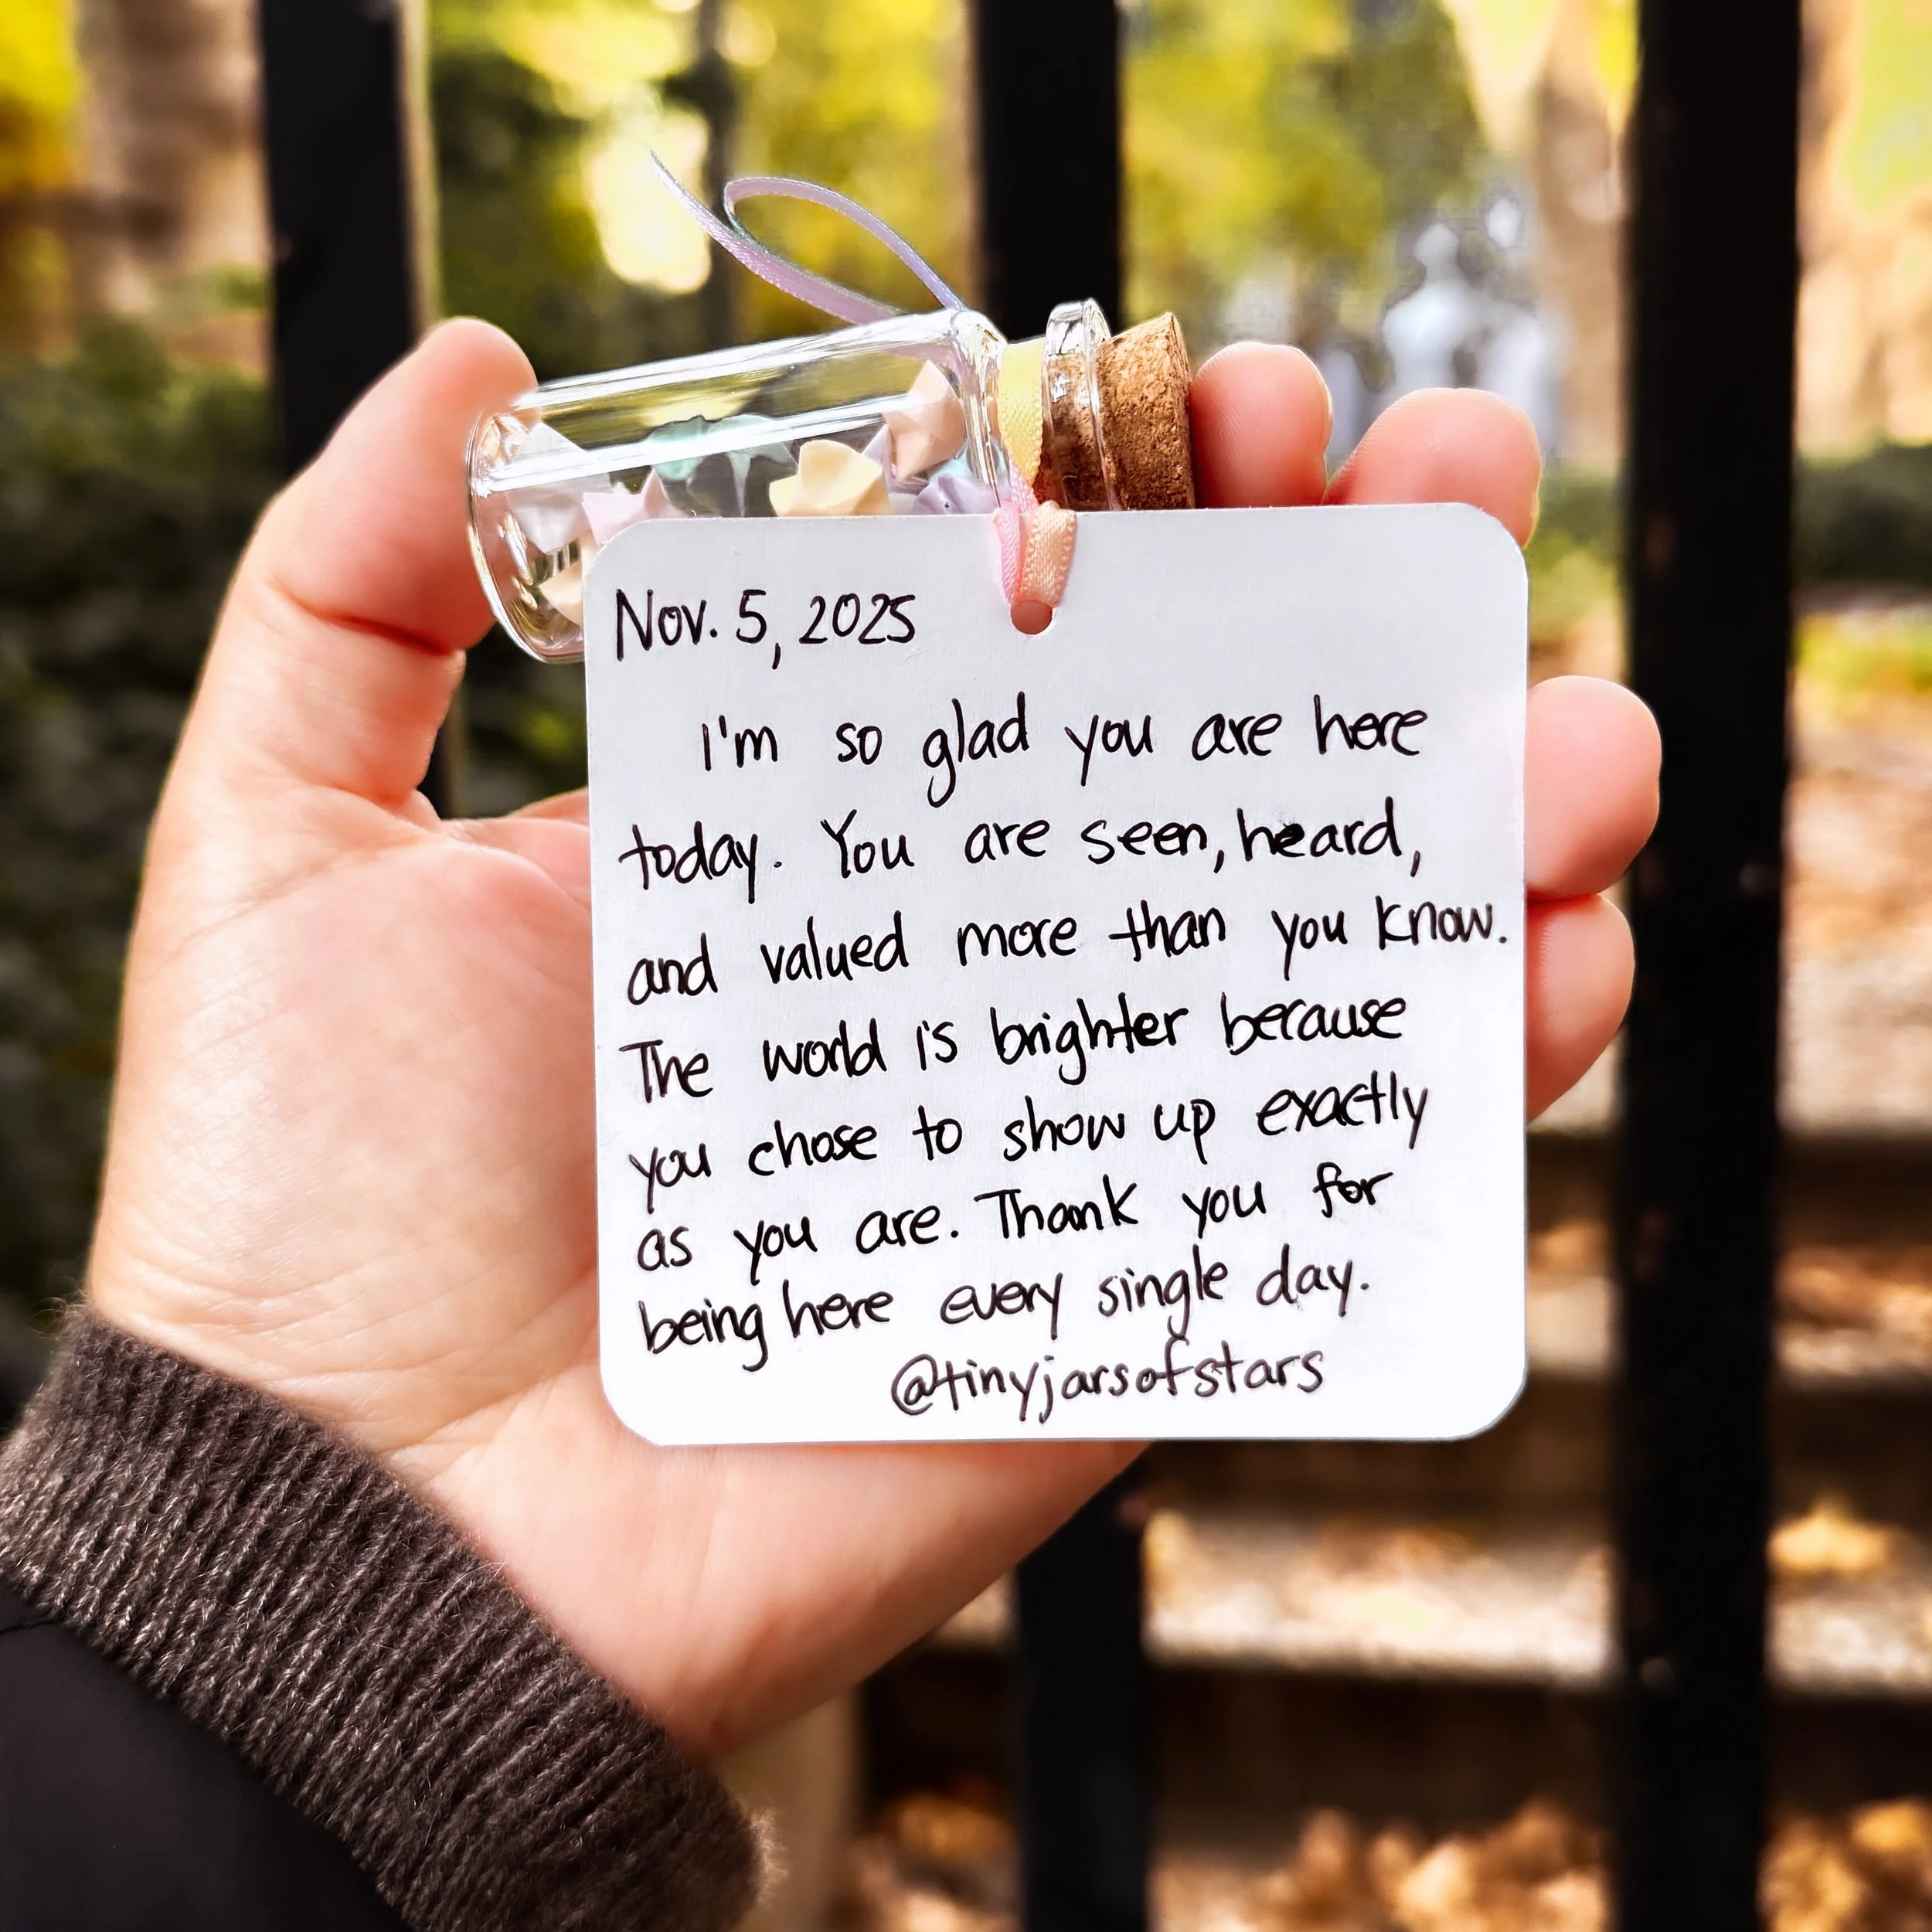 Nov. 5, 2025
I'm so glad you are here
today. You are seen, heard,
and valued more than you know.
The world is brighter because
you chose to show up exactly
as you are. Thank you for
being here every single day.
@tinyjarsofstars